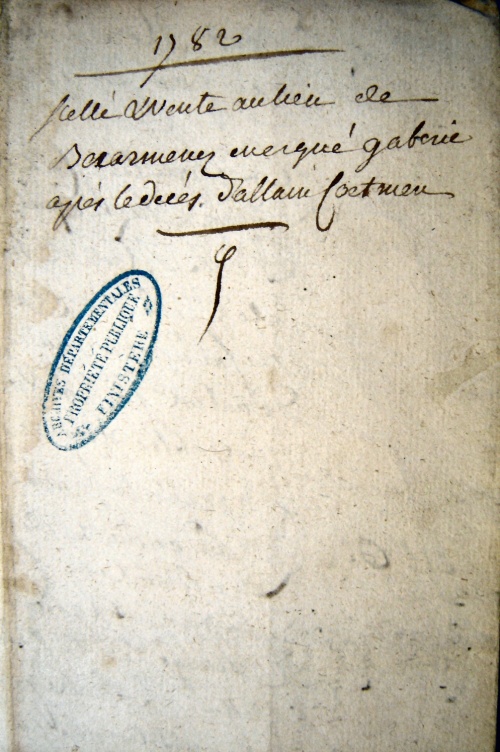 1782
scellé & vente au lieu de
Bozarmenez en ergué gaberic
après le décés d'allain Coetmen
ARCHIVES DÉPARTEMENTALES
PROPRIÉTÉ PUBLIQUE
FINISTÈRE